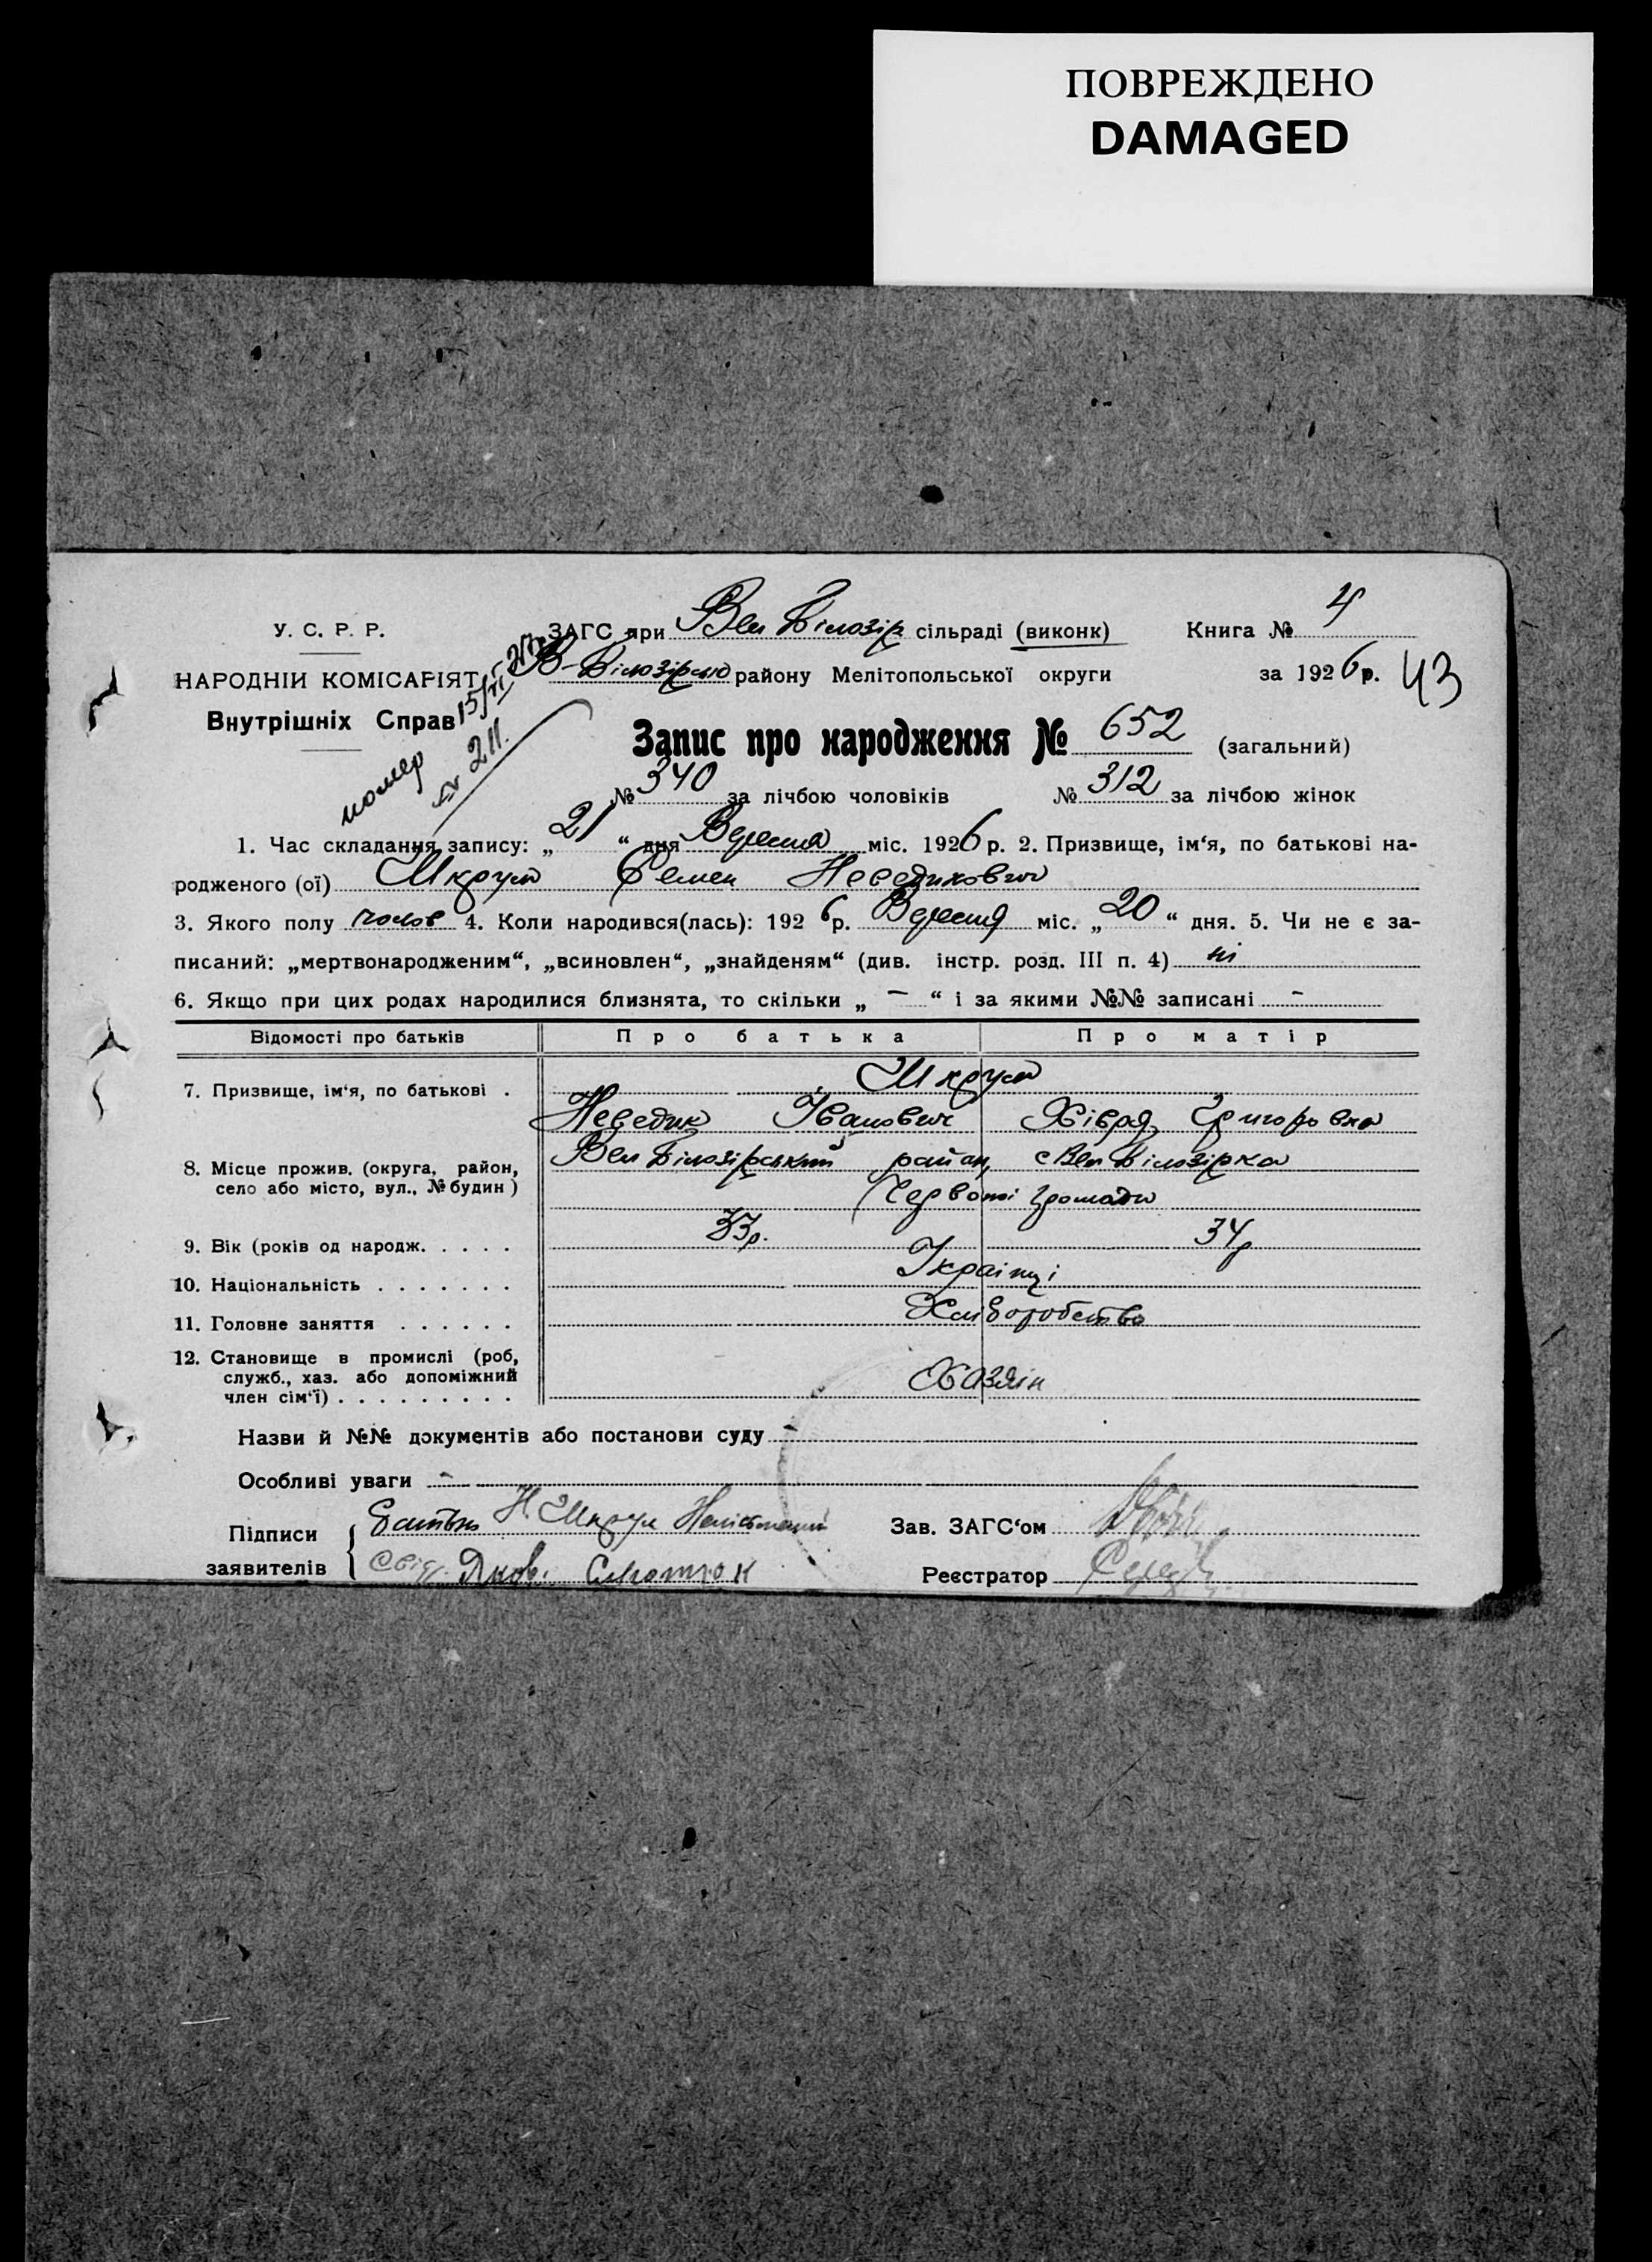 ПОВРЕЖДЕНО
DAMAGED
У. С. Р. Р.
ЗАГС при Вел Білозір сільраді (виконк)
Книга № 4
НАРОДНІЙ КОМІСАРІЯТ
В-Білозірсью району Мелітопольської округи
за 1926 р. 43
Внутрішніх Справ
15/VI
помер
211.
Запис про народження № 652 (загальний)
№ 340 за лічбою чоловіків № 312 за лічбою жінок
1. Час складання запису: „21“ дня Вересня міс. 1926 р. 2. Призвище, ім‘я, по батькові на-
родженого (ої) Шкрум Семен
3. Якого полу чолов 4. Коли народився(лась): 1926 р. Вересня міс. „20“ дня. 5. Чи не є за-
писаний: „мертвонародженим“, „всиновлен“, „знайденям“ (див. інстр. розд. III п. 4) ні
6. Якщо при цих родах народилися близнята, то скільки „ - “ і за якими №№ записані -
Відомості про батьків
Про батька
Про матір
7. Призвище, ім‘я, по батькові .
Шкрум
Іванович Хівря Григоровна
8. Місце прожив. (округа, район,
село або місто, вул., № будин )
Вел Білозірський район, с Вел Білозірка
Червоної Громади
9. Вік (років од народж. . . . .
33р. 34р
10. Національність . . . . . . .
Українці
11. Головне заняття . . . . . .
Хліборобство
12. Становище в промислі (роб,
служб., хаз. або допоміжний
член сім‘ї) . . . . . . . . .
Хазяїн
Назви й №№ документів або постанови суду -
Особливі уваги -
Підписи
заявителів
Батько Н. Шкрум
Свід. Яков
Зав. ЗАГС‘ом
Реєстратор